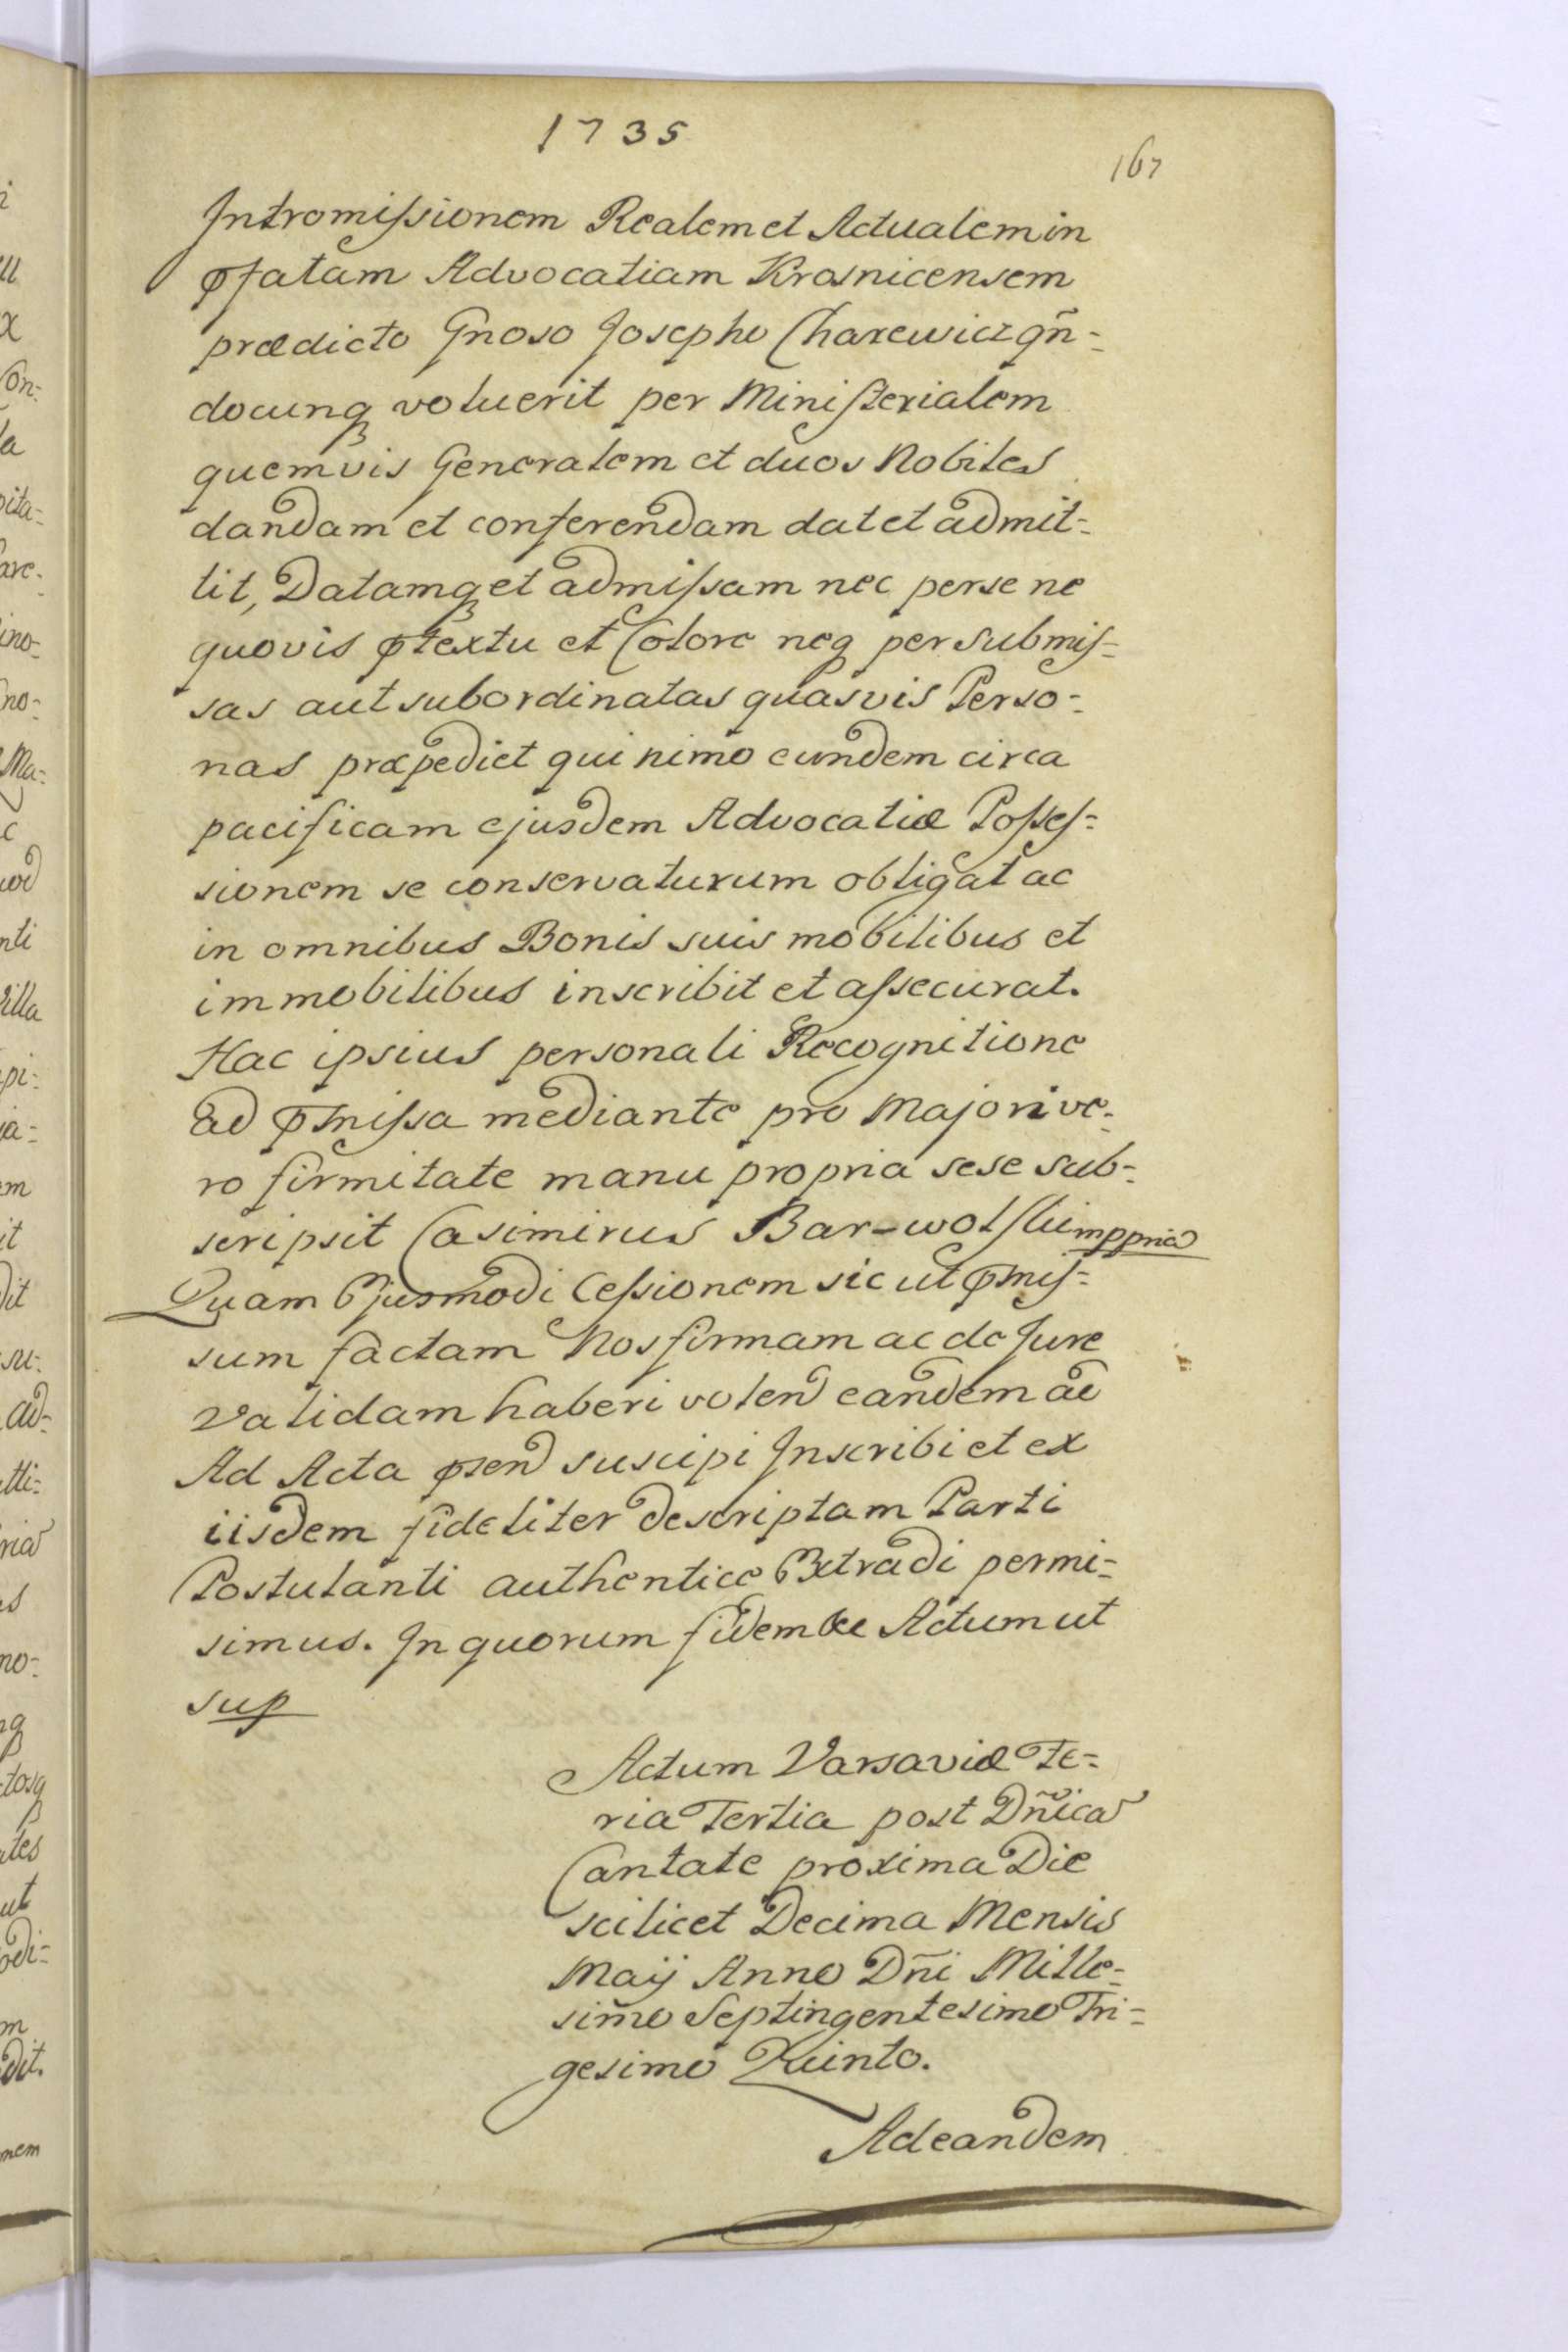 1735
167
Intromissionem Realem et Actualem in
pfatam Advocatiam Krasnicensem
prædicto Gnoso Josepho Charewicz qñ=
docunq voluerit per Ministerialem
quemvis Generalem et duos Nobiles
dandam et conferendam dat et admit=
tit, Datamq et admissam nec per se ne
quovis ptextu et Colore neq per submis=
sas aut subordinatas quasvis Perso=
nas præpediet qui nimo eundem circa
pacificam ejusdem Advocatiæ Posses=
sionem se conservaturum obligat ac
in omnibus Bonis suis mobilibus et
immobilibus inscribit et assecurat.
Hac ipsius personali Recognitione
ad pmissa mediante pro Majori ve=
ro firmitate manu propria sese sub=
scripsit Casimirus Bar-wolski mppria
Quam Ejusmodi Cessionem sic ut pmis=
sum factam Nos firmam ac de Jure
Validam haberi volen eandem ae
Ad Acta psen suscipi Inscribi et ex
iisdem fideliter descriptam Parti
Postulanti authentice Extradi permi=
simus. In quorum fidem &c Actum ut
sup
Actum Varsaviæ Fe=
ria Tertia post Dñica
Cantate proxima Die
scilicet Decima Mensis
Maÿ Anno Dñi Mille=
simo Septingentesimo Tri=
gesimo Quinto.
Ad eandem